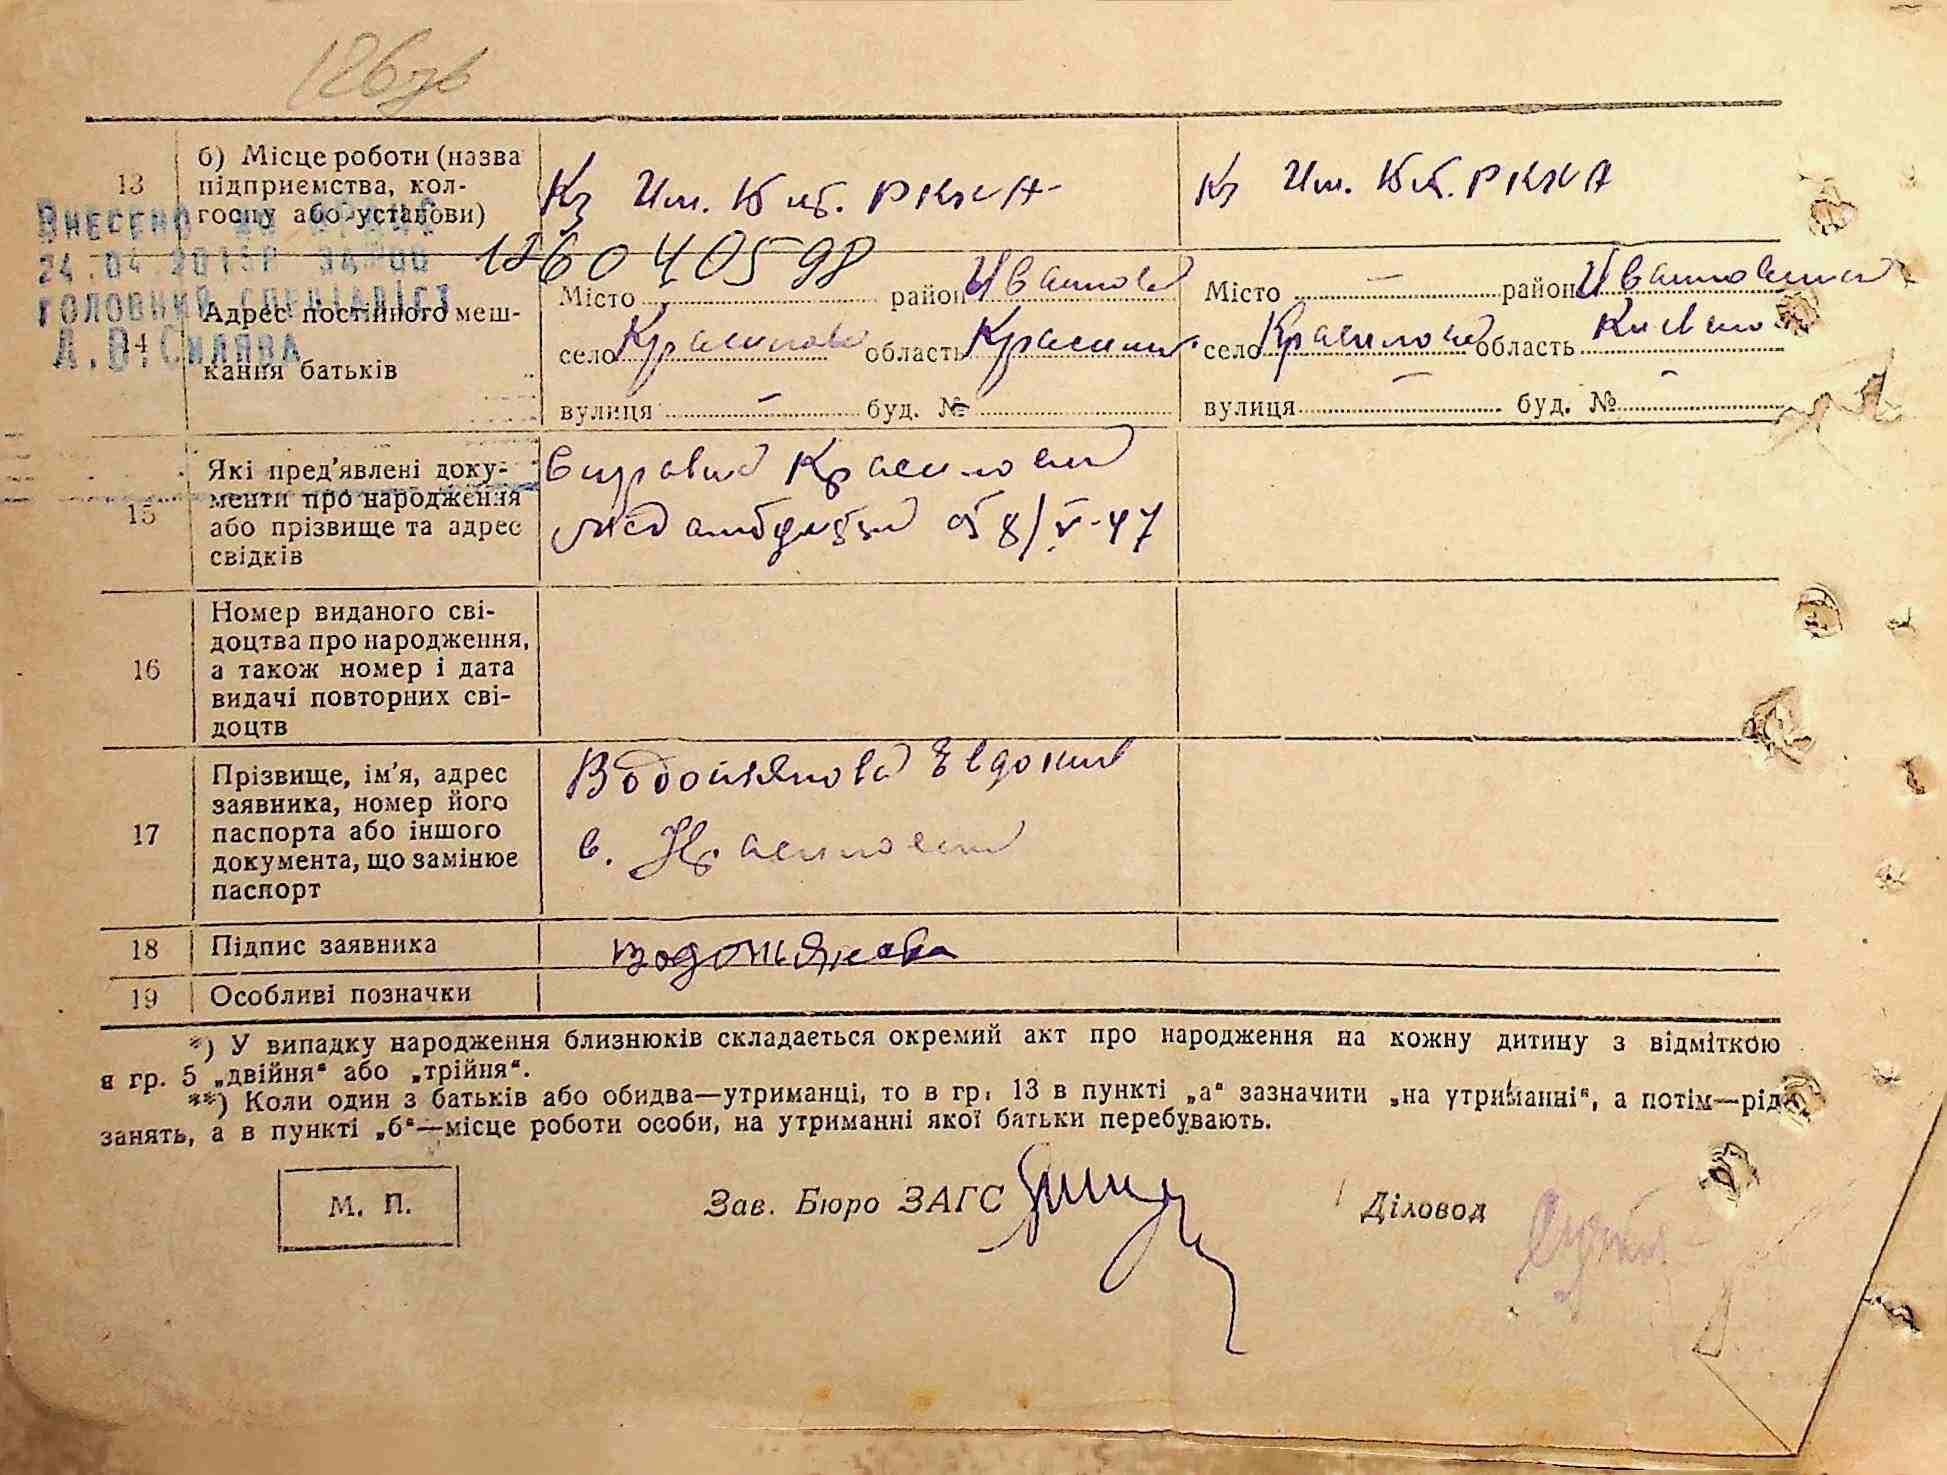 126зв
13
б) Місце роботи (назва
підприємства, кол-
госпу або установи)
Кз Им. Кмб. РККА
Кз Им. Кмб. РККА
ВНЕСЕНО
24.04.2015Р ЗА
ГОЛОВНИЙ СПЕЦІАЛІСТ
А.В. СИЛЯВА
126040598
14
Адрес постійного меш-
кання батьків
Місто — район Иванков
село Красилов область
вулиця — буд. №
Місто — район
село область Киевск
вулиця — буд. № -
15
Які пред'явлені доку-
менти про народження
або прізвище та адрес
свідків
Справка
от 8/V-47
16
Номер виданого сві-
доцтва про народження,
а також номер і дата
видачі повторних сві-
доцтв
17
Прізвище, ім'я, адрес
заявника, номер його
паспорта або іншого
документа, що замінює
паспорт
Водотянова Евдокия
с.
18
Підпис заявника
Водотянова
19
Особливі позначки
*) У випадку народження близнюків складається окремий акт про народження на кожну дитину з відміткою
в гр. 5 „двійня“ або „трійня“.
**) Коли один з батьків або обидва—утриманці, то в гр. 13 в пункті „а“ зазначити „на утриманні“, а потім—рід
занять, а в пункті „б“—місце роботи особи, на утриманні якої батьки перебувають.
М. П.
Зав. Бюро ЗАГС
Діловод